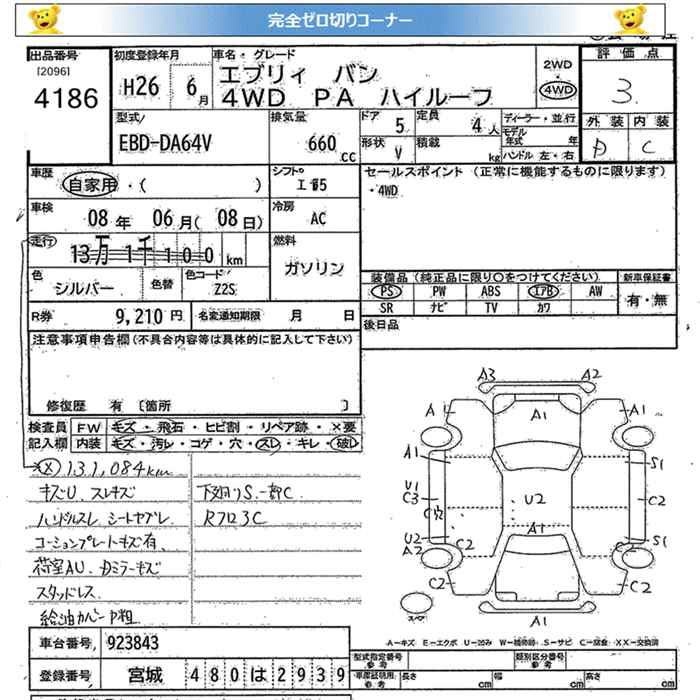 完全ゼロ切りコーナー
出品番号
[2096]
4186
初度登録年月
H26 6月
車名・グレード
エブリィ バン
4WD PA ハイルーフ
2WD
4WD
評価点
3
外装 内装
D C
型式
EBD-DA64V
排気量
660 cc
ドア 5
定員 4人
形状 V
積載 kg
ディーラー・並行
モデル年式 年
ハンドル 左・右
車歴
自家用・( )
シフト
エ 5
セールスポイント (正常に機能するものに限ります)
・4WD
車検
08年 06月(08日)
冷房
AC
走行
13万 1千 100 km
燃料
ガソリン
色
シルバー
色替
色コード
Z2S
装備品 (純正品に限り○をつけてください)
PS PW ABS エアB AW
SR ナビ TV カワ
新車保証書
有・無
R券 9,210円
名変通知期限 月 日
後日品
注意事項申告欄(不具合内容等は具体的に記入して下さい)
修復歴 有 〔箇所 〕
検査員記入欄
FW キズ・飛石・ヒビ割・リペア跡・×要
内装 キズ・汚レ・コゲ・穴・スレ・キレ・破レ
131,084km
キズU. スレキズ
ハンドルスレ シートヤブレ.
コーションプレートキズ有.
荷室AU. Dミラーキズ
スタッドレス
給油カバーP粗
下廻りS.一部C
Rフロ3C
A3 A2
A A1 A1
A1 S1
U1 C3 U2 C2
A1 S1
U2 A2 C2 C2
C2 C2
A1
A-キズ E-エクボ U-凹み W-補修跡 S-サビ C-腐食 XX-交換済
車台番号 923843
登録番号 宮城 480 は 2939
型式指定番号 参考
類別区分番号 参考
車庫証明用 参考 長さ cm 幅 cm 高さ cm